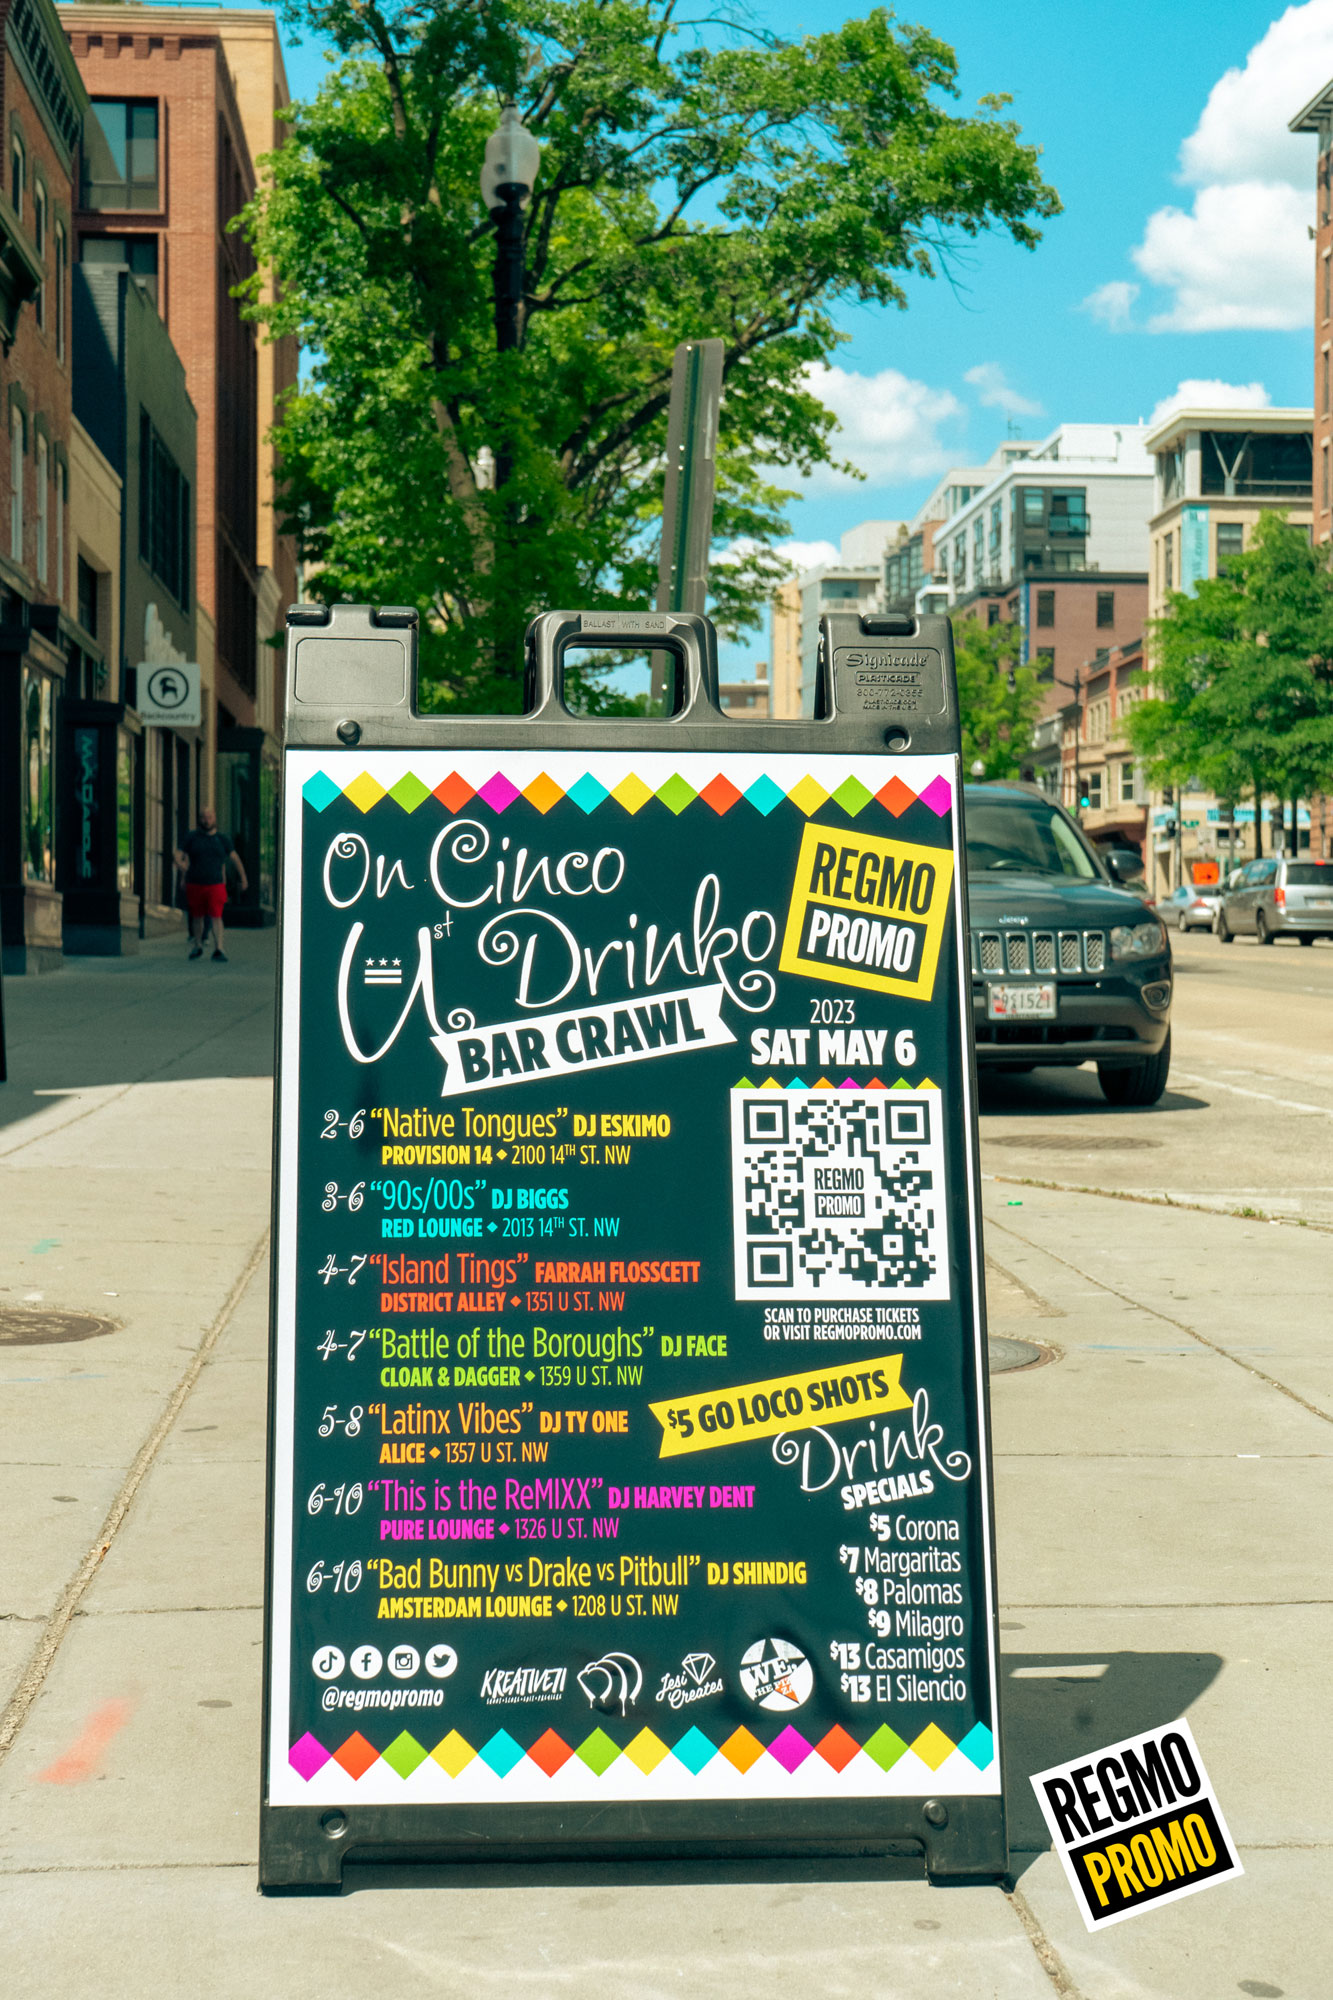 BALLAST WITH SAND
Signicade
PLASTICADE
800-772-0355
PLASTICADE.COM
MADE IN THE U.S.A.
Backcountry
On Cinco
Ust Drinko
BAR CRAWL
REGMO
PROMO
2023
SAT MAY 6
2-6 “Native Tongues” DJ ESKIMO
PROVISION 14 ◆ 2100 14TH ST. NW
3-6 “90s/00s” DJ BIGGS
RED LOUNGE ◆ 2013 14TH ST. NW
4-7 “Island Tings” FARRAH FLOSSCETT
DISTRICT ALLEY ◆ 1351 U ST. NW
4-7 “Battle of the Boroughs” DJ FACE
CLOAK & DAGGER ◆ 1359 U ST. NW
5-8 “Latinx Vibes” DJ TY ONE
ALICE ◆ 1357 U ST. NW
6-10 “This is the ReMIXX” DJ HARVEY DENT
PURE LOUNGE ◆ 1326 U ST. NW
6-10 “Bad Bunny vs Drake vs Pitbull” DJ SHINDIG
AMSTERDAM LOUNGE ◆ 1208 U ST. NW
REGMO
PROMO
SCAN TO PURCHASE TICKETS
OR VISIT REGMOPROMO.COM
$5 GO LOCO SHOTS
Drink
SPECIALS
$5 Corona
$7 Margaritas
$8 Palomas
$9 Milagro
$13 Casamigos
$13 El Silencio
@regmopromo
KREATIVE71
Jesi
Creates
WE,
THE PIZZA
Jeep
REGMO
PROMO